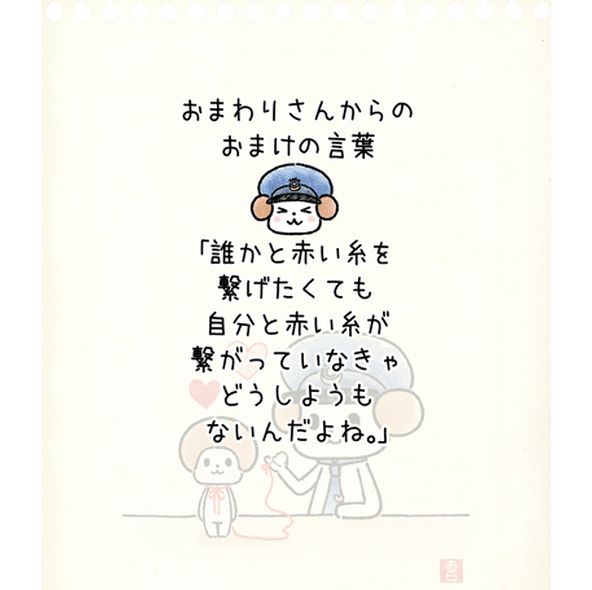 おまわりさんからの
おまけの言葉
「誰かと赤い糸を
繋げたくても
自分と赤い糸が
繋がっていなきゃ
どうしようも
ないんだよね。」